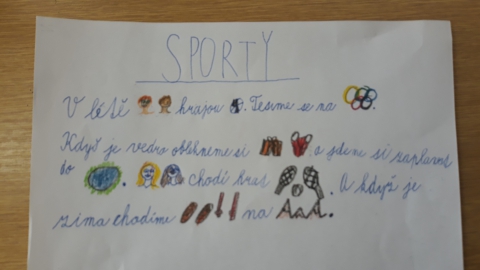 SPORTY
V létě hrajou . Tesíme se na .
Když je vedro oblékneme si a jdeme si zaplavat
do . chodí hrát . A když je
zima chodíme na .